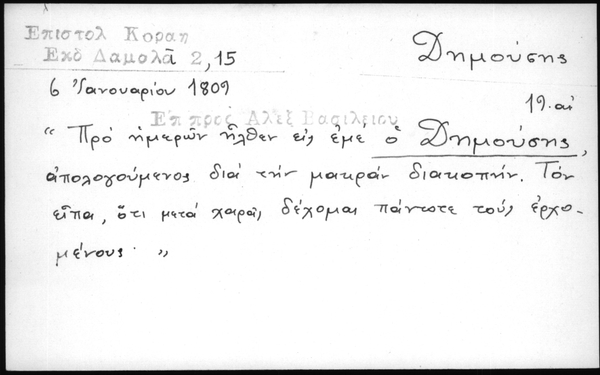 Επιστολ Κοραη
Εκδ Δαμολᾶ 2,15
Δημούσης
6 Ἰανουαρίου 1809
19. αἰ
Επ προς Αλεξ Βασιλειου
“ Πρό ἡμερῶν ἦλθεν εἰς ἐμέ ὁ Δημούσης,
ἀπολογούμενος διά τήν μακράν διακοπήν. Τόν
εἶπα, ὅτι μετά χαρᾶς δέχομαι πάντοτε τούς ἐρχο-
μένους. ”